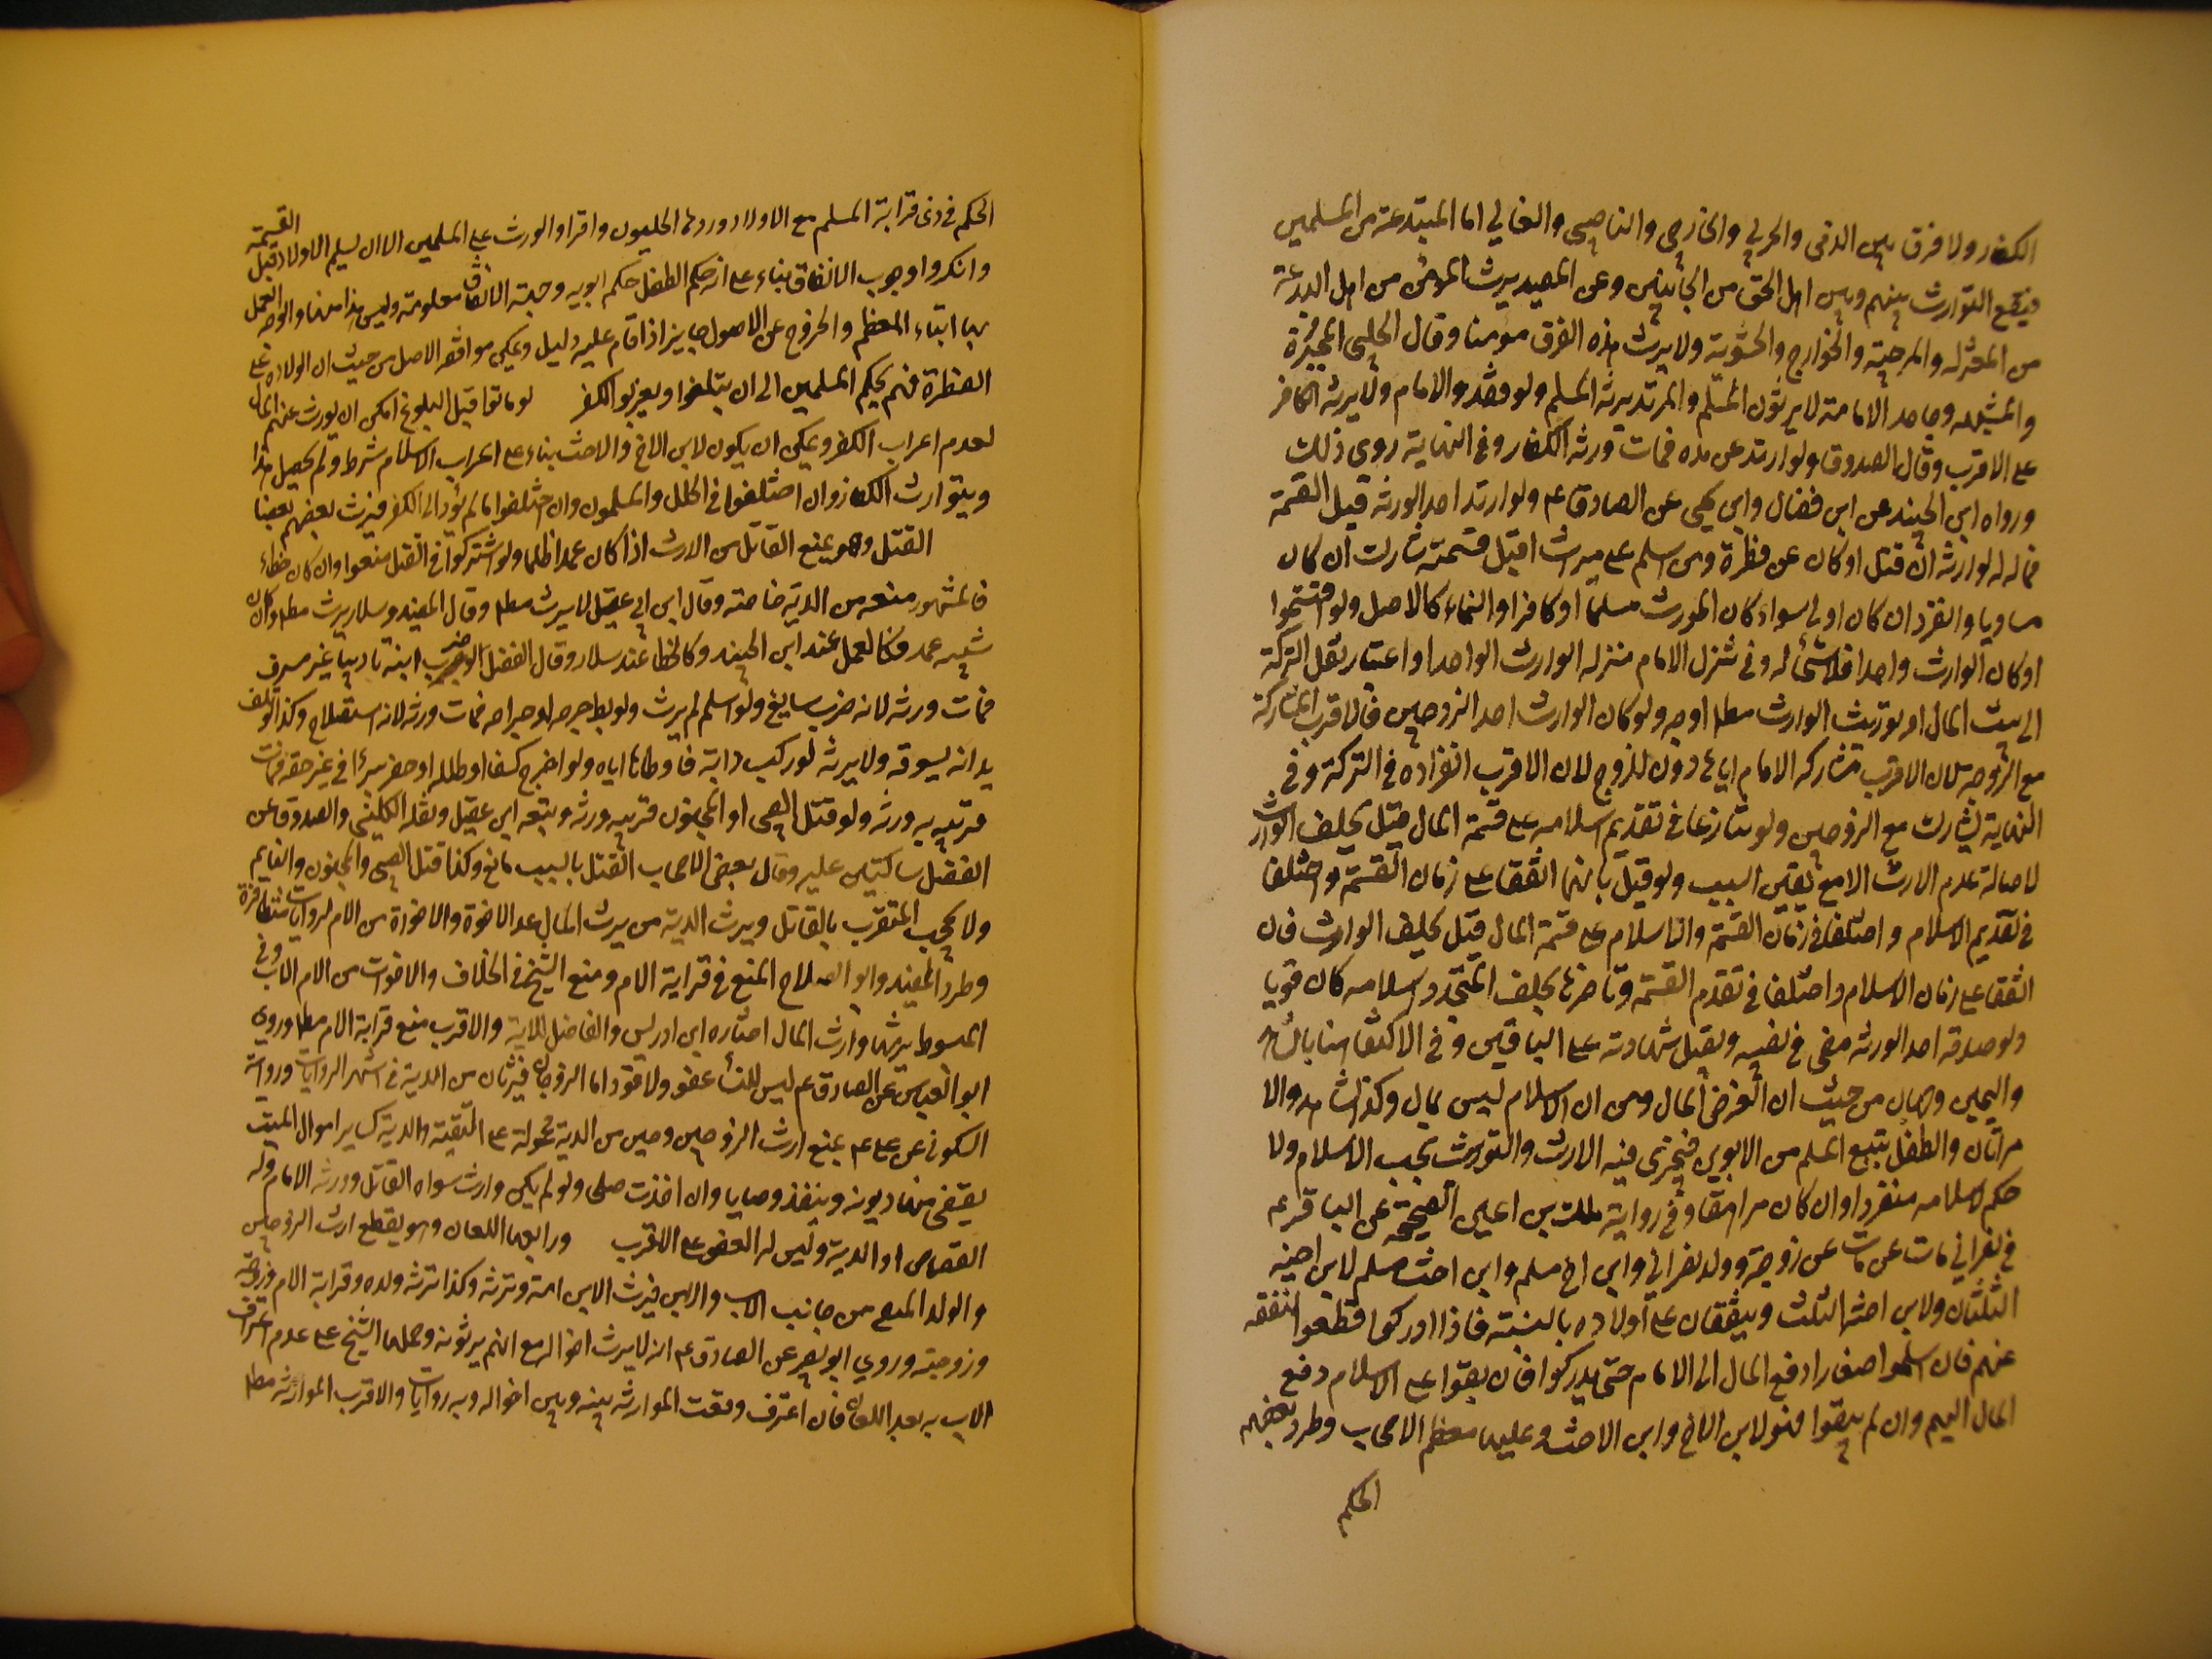 الكفار ولا فرق بين الذمي والحربي والخارجي والناصبي والغالي اما المبتدعة من المسلمين
فيقع التوارث بينهم وبين اهل الحق من الجانبين وعن المفيد يرث المؤمن من اهل البدعة
من المعتزله والمرجئة والخوارج والحشوية ولا يرث هذه الفرق مؤمنا وقال الحلبي المجبرة
والمشبهه وجاحد الامامة لا يرثون المسلم والمرتد يرثه المسلم ولو فقد والامام ولا يرثه الكافر
على الاقرب وقال الصدوق ولو ارتد عن مله فمات ورثه الكفار وفي النهاية روى ذلك
ورواه ابن الجنيد عن ابن فضال وابن يحيى عن الصادق عم ولو ارتد احد الورثه قبل القسمة
فماله لوارثه ان قتل او كان عن فطرة ومن اسلم على ميراث اقبل قسمته شارك ان كان
مساويا وانفرد ان كان اولى سواء كان المورث مسلما او كافرا والنماء كالاصل ولو اقتسموا
او كان الوارث واحدا فلا شئ له وفي تنزل الامام منزله الوارث الواحد او اعتبار نقل التركة
الى بيت المال او توريث الوارث مطلا اوجه ولو كان الوارث احد الزوجين فالاقرب المشاركة
مع الزوجه لان الاقرب مشاركه الامام اياها دون الزوج لان الاقرب انفراده في التركة وفي
النهاية يشارك مع الزوجين ولو تنازعا في تقديم اسلامه على قسمة المال قبل يحلف الوارث
لاصالة عدم الارث الا مع تيقن السبب ولو قيل بانهما اتفقا على زمان القسمة واختلفا
في تقديم الاسلام واختلفا في زمان القسمة والاسلام على قسمة المال قبل يحلف الوارث فان
اتفقا على زمان الاسلام واختلفا في تقدم القسمة وتاخرها يحلف المتجدد اسلامه كان قويا
ولو صدقه احد الورثه مضى في نصيبه وتقبل شهادته على الباقين وفي الاكتفا هنا بالشاهد
واليمين وجهان من حيث ان الغرض المال ومن ان الاسلام ليس بمال وكذا الشاهد والا
مراتان والطفل يتبع المسلم من الابوين فيجري فيه الارث والتوريث بحجب الاسلام ولا
حكم لاسلامه منفردا وان كان مراهقا وفي رواية ملك بن اعين الصحيحة عن الباقر عم
في نصراني مات عن زوجة وولد نصراني وابن اخ مسلم وابن اخت مسلم لابن اخيه
الثلثان ولابن اخته الثلث وينفقان على اولاده بالنسبة فاذا ادركوا قطعوا النفقه
عنهم فان اسلموا صغارا دفع المال الى الامام حتى يدركوا فان بقوا على الاسلام دفع
المال اليهم وان لم يبقوا فهو لابن الاخ وابن الاخت وعليها معظم الاصحاب وطرد بعضهم
الحكم
الحكم في ذي قرابة المسلم مع الاولاد وردها الحليون واقرا والورث على المسلمين الا ان يسلم الاولاد قبل القسمة
وانكروا وجوب الانفاق بناء على ان حكم الطفل حكم ابويه وجهة الانفاق معلومة وليس هذا منها والوجه العمل
بها اتباء المعظم والخروج عن الاصول جايز اذا قام عليه دليل ويمكن موافقه الاصل من حيث ان الولاده على
الفطرة فهم بحكم المسلمين الى ان يبلغوا ويعربوا الكفر لو ماتوا قبل البلوغ امكن ان يورث عنهم المال
لعدم اعراب الكفر ويمكن ان يكون لابن الاخ والاخت بناء على اعراب الاسلام شرط ولم يحصل هذا
ويتوارث الكفار وان اختلفوا في الملل والمسلمون وان اختلفوا ما لم يؤد الى الكفر فيرث بعضهم بعضا
القتل وهو يمنع القاتل من الارث اذا كان عمدا ظلما ولو اشتركوا في القتل منعوا وان كان خطاء
فالمشهور منعه من الدية خاصة وقال ابن ابي عقيل لا يرث مطلا وقال المفيد وسلار يرث مطلا وان كان
شبيه عمد فكالعمل عند ابن الجنيد وكالخطا عند سلار وقال الفضل لو ضرب ابنه تاديبا غير مسرف
فمات ورثه لانه ضرب سايغ ولو اسلم لم يرث ولو بط جرحه او جراحه فمات ورثه لانه استصلاح وكذا لو تلف
بدابه يسوقه ولا يرثه لو ركب دابة فاوطاها اياه ولو اخرج كنيفا او ظله او حفر بيرا في غير حقه فمات
قريبه به ورثه ولو قتل الصبي او المجنون قريبه ورثه وتبعه ابن عقيل ونقله الكليني والصدوق عن
الفضل ساكتين عليه وقال بعض الاصحاب القتل بالسبب مانع وكذا قتل الصبي والمجنون والنايم
ولا يحجب المتقرب بالقاتل ويرث الدية من يرث المال عدا الاخوة والاخوات من الام لروايات متظافرة
وطرد المفيد وابو الصلاح المنع في قرابة الام ومنع الشيخ في الخلاف والاخوات من الام الاب وفي
المبسوط يرثها وارث المال اختاره ابن ادريس والفاضل للاية والاقرب منع قرابة الام مطلا وروى
ابو العباس عن الصادق عم ليس للنساء عفو ولا قود اما الزوجان فيرثان من الدية في اشهر الروايات ورواية
السكوني عن علي عم بمنع ارث الزوجين من الدية محمولة على التقية والدية كساير اموال الميت
يقضى منها ديونه وينفذ وصايا وان اخذت صلحا ولو لم يكن وارث سواه القاتل وورثه الامام وله
القصاص او الدية وليس له العفو على الاقرب ورابعها اللعان وهو يقطع ارث الزوجين
والولد المنفي من جانب الاب والابن فيرث الابن امه وترثه وكذا ترثه ولده وقرابة الام وزوجه
وزوجته وروي ابو بصير عن الصادق عم انه لا يرث اخواله مع انهم يرثونه وحملها الشيخ على عدم اعتراف
الاب به بعد اللعان فان اعترف وقعت الموارثه بينه وبين اخواله وبه روايات والاقرب الموارثه مطلا